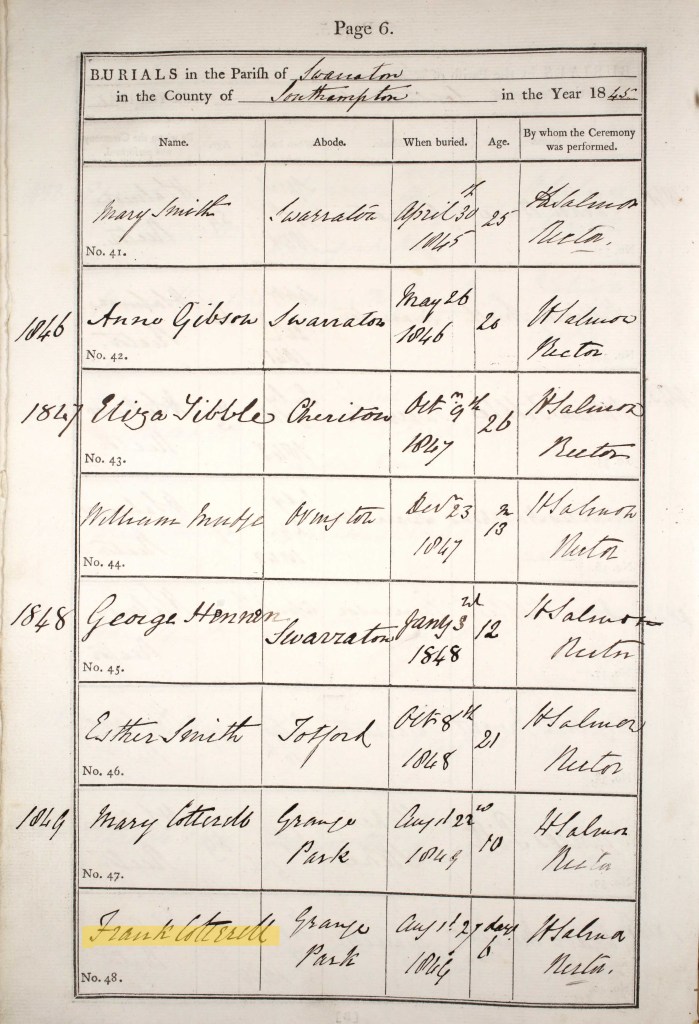 Page 6.
BURIALS in the Parish of Swarraton
in the County of Southampton in the Year 1845
Name. Abode. When buried. Age. By whom the Ceremony was performed.
Mary Smith Swarraton April 30th 1845 25 H Salmon Rector.
No. 41.
1846 Anne Gibson Swarraton May 26 1846 20 H Salmon Rector
No. 42.
1847 Eliza Tibble Cheriton Oct 9th 1847 26 H Salmon Rector
No. 43.
William Mudge Ovington Decr 23 1847 13 H Salmon Rector
No. 44.
1848 George Hennen Swarraton Jany 3rd 1848 12 H Salmon Rector
No. 45.
Esther Smith Totford Oct 8th 1848 21 H Salmon Rector
No. 46.
1849 Mary Cotterell Grange Park Augst 22nd 1849 10 H Salmon Rector
No. 47.
Frank Cotterell Grange Park Augst 27 1849 6 days H Salmon Rector.
No. 48.